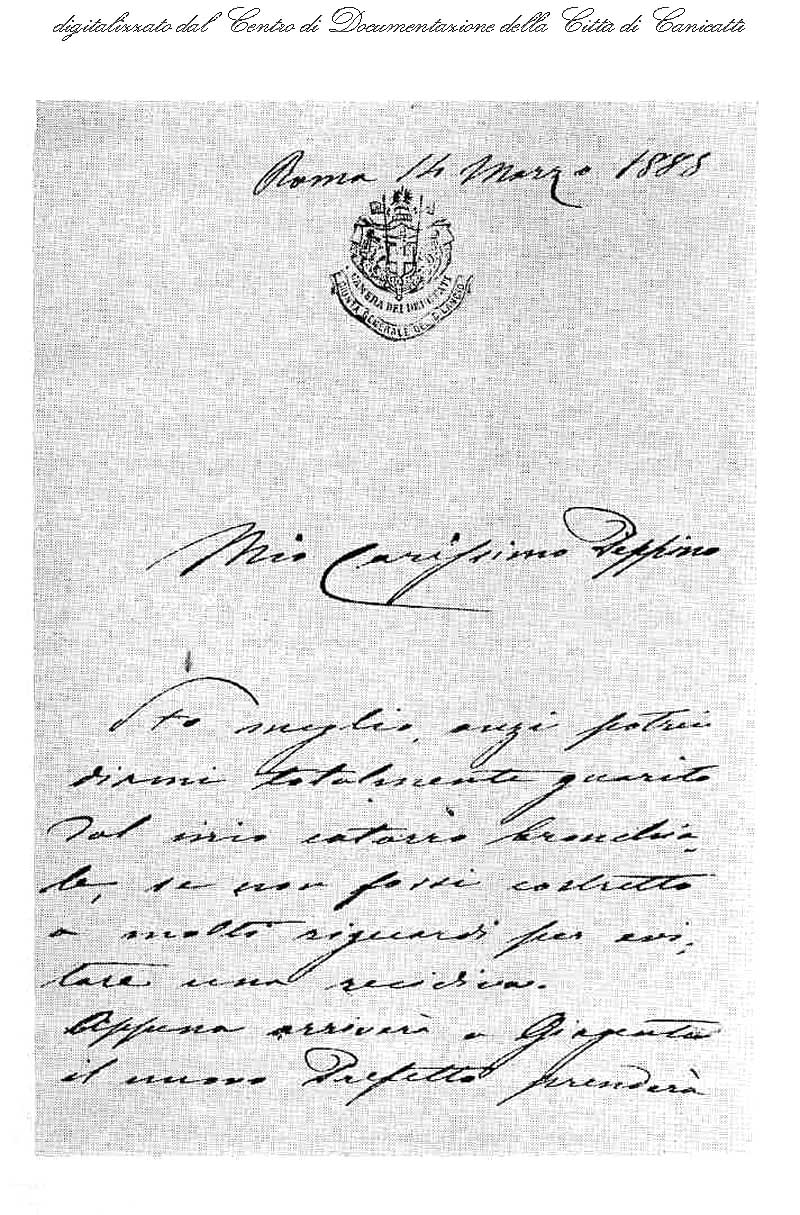 digitalizzato dal Centro di Documentazione della Città di Canicattì
Roma 14 Marzo 1888
CAMERA DEI DEPUTATI
GIUNTA GENERALE DEL BILANCIO
Mio Carissimo Peppino
Sto meglio, anzi potrei
dirmi totalmente guarito
dal mio catarro bronchia-
le, se non fossi costretto
a molti riguardi per evi-
tare una recidiva.
Appena arriverà a Girgenti
il nuovo Prefetto prenderà